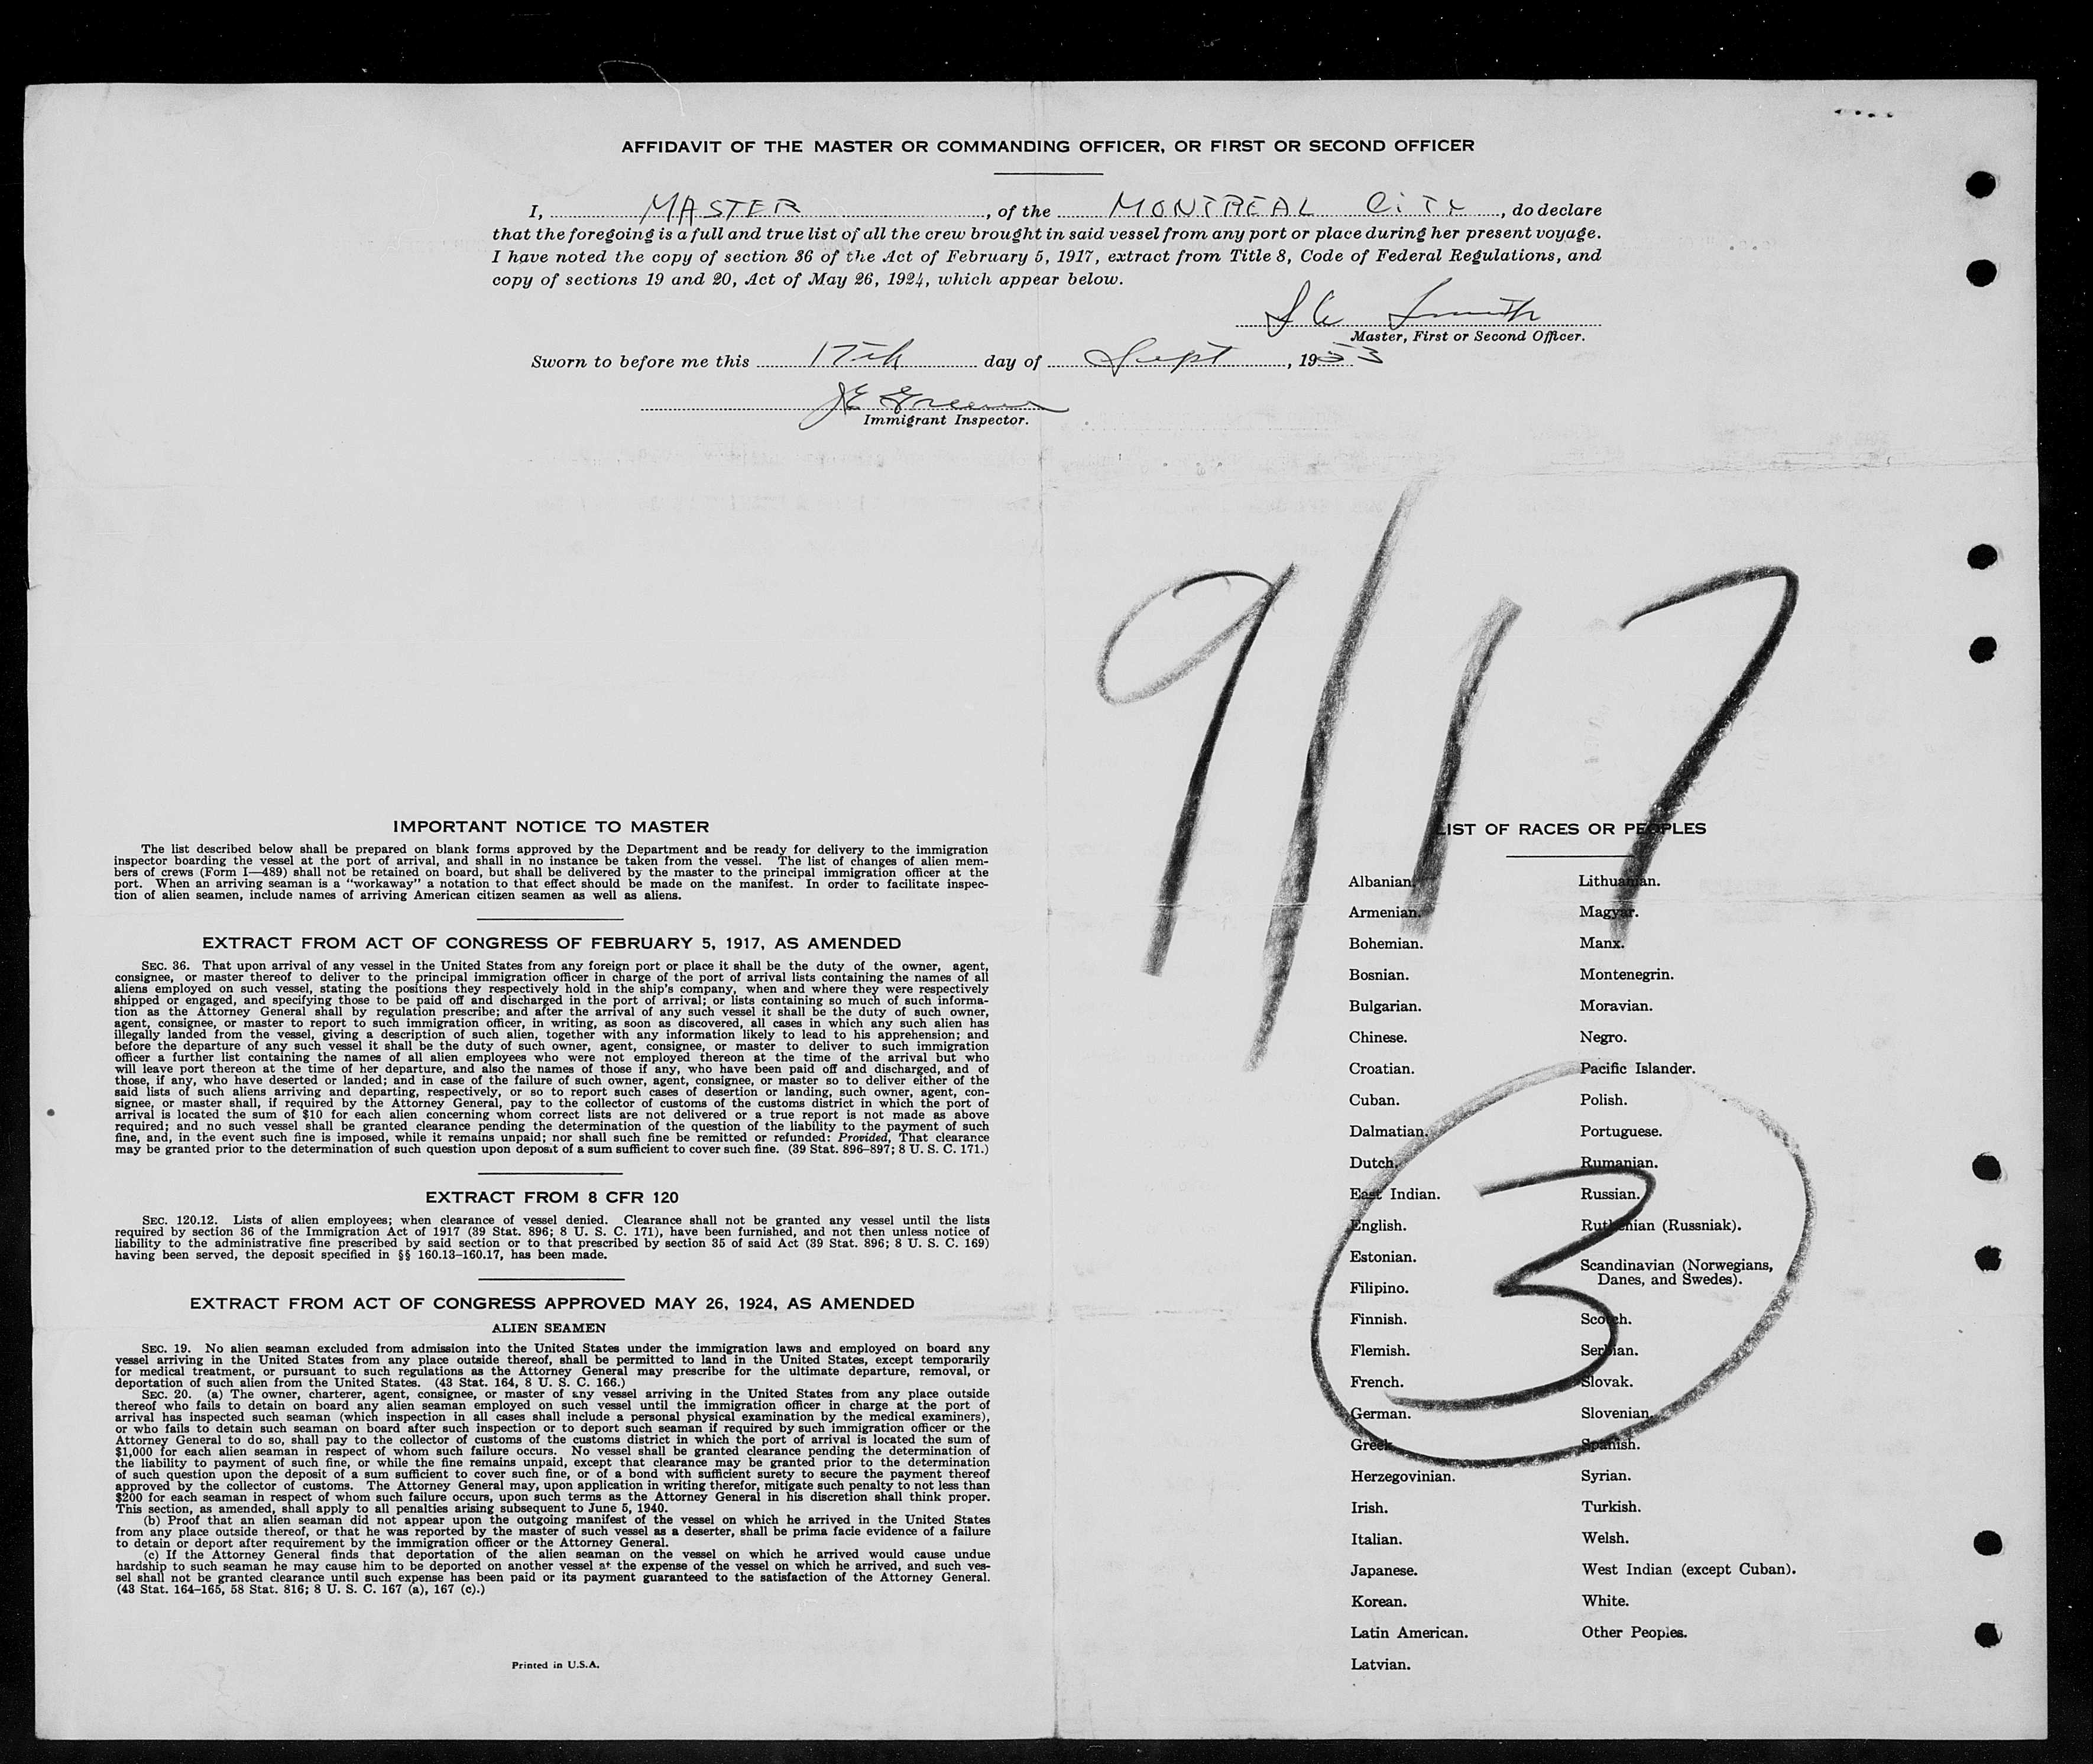 AFFIDAVIT OF THE MASTER OR COMMANDING OFFICER, OR FIRST OR SECOND OFFICER
I, MASTER, of the MONTREAL CITY, do declare
that the foregoing is a full and true list of all the crew brought in said vessel from any port or place during her present voyage.
I have noted the copy of section 36 of the Act of February 5, 1917, extract from Title 8, Code of Federal Regulations, and
copy of sections 19 and 20, Act of May 26, 1924, which appear below.
Smith
Master, First or Second Officer.
Sworn to before me this 17th day of Sept, 1953
Immigrant Inspector.
9/17
IMPORTANT NOTICE TO MASTER
The list described below shall be prepared on blank forms approved by the Department and be ready for delivery to the immigration
inspector boarding the vessel at the port of arrival, and shall in no instance be taken from the vessel. The list of changes of alien mem-
bers of crews (Form I—489) shall not be retained on board, but shall be delivered by the master to the principal immigration officer at the
port. When an arriving seaman is a "workaway" a notation to that effect should be made on the manifest. In order to facilitate inspec-
tion of alien seamen, include names of arriving American citizen seamen as well as aliens.
EXTRACT FROM ACT OF CONGRESS OF FEBRUARY 5, 1917, AS AMENDED
SEC. 36. That upon arrival of any vessel in the United States from any foreign port or place it shall be the duty of the owner, agent,
consignee, or master thereof to deliver to the principal immigration officer in charge of the port of arrival lists containing the names of all
aliens employed on such vessel, stating the positions they respectively hold in the ship's company, when and where they were respectively
shipped or engaged, and specifying those to be paid off and discharged in the port of arrival; or lists containing so much of such informa-
tion as the Attorney General shall by regulation prescribe; and after the arrival of any such vessel it shall be the duty of such owner,
agent, consignee, or master to report to such immigration officer, in writing, as soon as discovered, all cases in which any such alien has
illegally landed from the vessel, giving a description of such alien, together with any information likely to lead to his apprehension; and
before the departure of any such vessel it shall be the duty of such owner, agent, consignee, or master to deliver to such immigration
officer a further list containing the names of all alien employees who were not employed thereon at the time of the arrival but who
will leave port thereon at the time of her departure, and also the names of those if any, who have been paid off and discharged, and of
those, if any, who have deserted or landed; and in case of the failure of such owner, agent, consignee, or master so to deliver either of the
said lists of such aliens arriving and departing, respectively, or so to report such cases of desertion or landing, such owner, agent, con-
signee, or master shall, if required by the Attorney General, pay to the collector of customs of the customs district in which the port of
arrival is located the sum of $10 for each alien concerning whom correct lists are not delivered or a true report is not made as above
required; and no such vessel shall be granted clearance pending the determination of the question of the liability to the payment of such
fine, and, in the event such fine is imposed, while it remains unpaid; nor shall such fine be remitted or refunded: Provided, That clearance
may be granted prior to the determination of such question upon deposit of a sum sufficient to cover such fine. (39 Stat. 896–897; 8 U. S. C. 171.)
EXTRACT FROM 8 CFR 120
SEC. 120.12. Lists of alien employees; when clearance of vessel denied. Clearance shall not be granted any vessel until the lists
required by section 36 of the Immigration Act of 1917 (39 Stat. 896; 8 U. S. C. 171), have been furnished, and not then unless notice of
liability to the administrative fine prescribed by said section or to that prescribed by section 35 of said Act (39 Stat. 896; 8 U. S. C. 169)
having been served, the deposit specified in §§ 160.13–160.17, has been made.
EXTRACT FROM ACT OF CONGRESS APPROVED MAY 26, 1924, AS AMENDED
ALIEN SEAMEN
SEC. 19. No alien seaman excluded from admission into the United States under the immigration laws and employed on board any
vessel arriving in the United States from any place outside thereof, shall be permitted to land in the United States, except temporarily
for medical treatment, or pursuant to such regulations as the Attorney General may prescribe for the ultimate departure, removal, or
deportation of such alien from the United States. (43 Stat. 164, 8 U. S. C. 166.)
SEC. 20. (a) The owner, charterer, agent, consignee, or master of any vessel arriving in the United States from any place outside
thereof who fails to detain on board any alien seaman employed on such vessel until the immigration officer in charge at the port of
arrival has inspected such seaman (which inspection in all cases shall include a personal physical examination by the medical examiners),
or who fails to detain such seaman on board after such inspection or to deport such seaman if required by such immigration officer or the
Attorney General to do so, shall pay to the collector of customs of the customs district in which the port of arrival is located the sum of
$1,000 for each alien seaman in respect of whom such failure occurs. No vessel shall be granted clearance pending the determination of
the liability to payment of such fine, or while the fine remains unpaid, except that clearance may be granted prior to the determination
of such question upon the deposit of a sum sufficient to cover such fine, or of a bond with sufficient surety to secure the payment thereof
approved by the collector of customs. The Attorney General may, upon application in writing therefor, mitigate such penalty to not less than
$200 for each seaman in respect of whom such failure occurs, upon such terms as the Attorney General in his discretion shall think proper.
This section, as amended, shall apply to all penalties arising subsequent to June 5, 1940.
(b) Proof that an alien seaman did not appear upon the outgoing manifest of the vessel on which he arrived in the United States
from any place outside thereof, or that he was reported by the master of such vessel as a deserter, shall be prima facie evidence of a failure
to detain or deport after requirement by the immigration officer or the Attorney General.
(c) If the Attorney General finds that deportation of the alien seaman on the vessel on which he arrived would cause undue
hardship to such seaman he may cause him to be deported on another vessel at the expense of the vessel on which he arrived, and such ves-
sel shall not be granted clearance until such expense has been paid or its payment guaranteed to the satisfaction of the Attorney General.
(43 Stat. 164–165, 58 Stat. 816; 8 U. S. C. 167 (a), 167 (c).)
Printed in U.S.A.
LIST OF RACES OR PEOPLES
Albanian.
Armenian.
Bohemian.
Bosnian.
Bulgarian.
Chinese.
Croatian.
Cuban.
Dalmatian.
Dutch.
East Indian.
English.
Estonian.
Filipino.
Finnish.
Flemish.
French.
German.
Greek.
Herzegovinian.
Irish.
Italian.
Japanese.
Korean.
Latin American.
Latvian.
Lithuanian.
Magyar.
Manx.
Montenegrin.
Moravian.
Negro.
Pacific Islander.
Polish.
Portuguese.
Rumanian.
Russian.
Ruthenian (Russniak).
Scandinavian (Norwegians,
Danes, and Swedes).
Scotch.
Serbian.
Slovak.
Slovenian.
Spanish.
Syrian.
Turkish.
Welsh.
West Indian (except Cuban).
White.
Other Peoples.
3